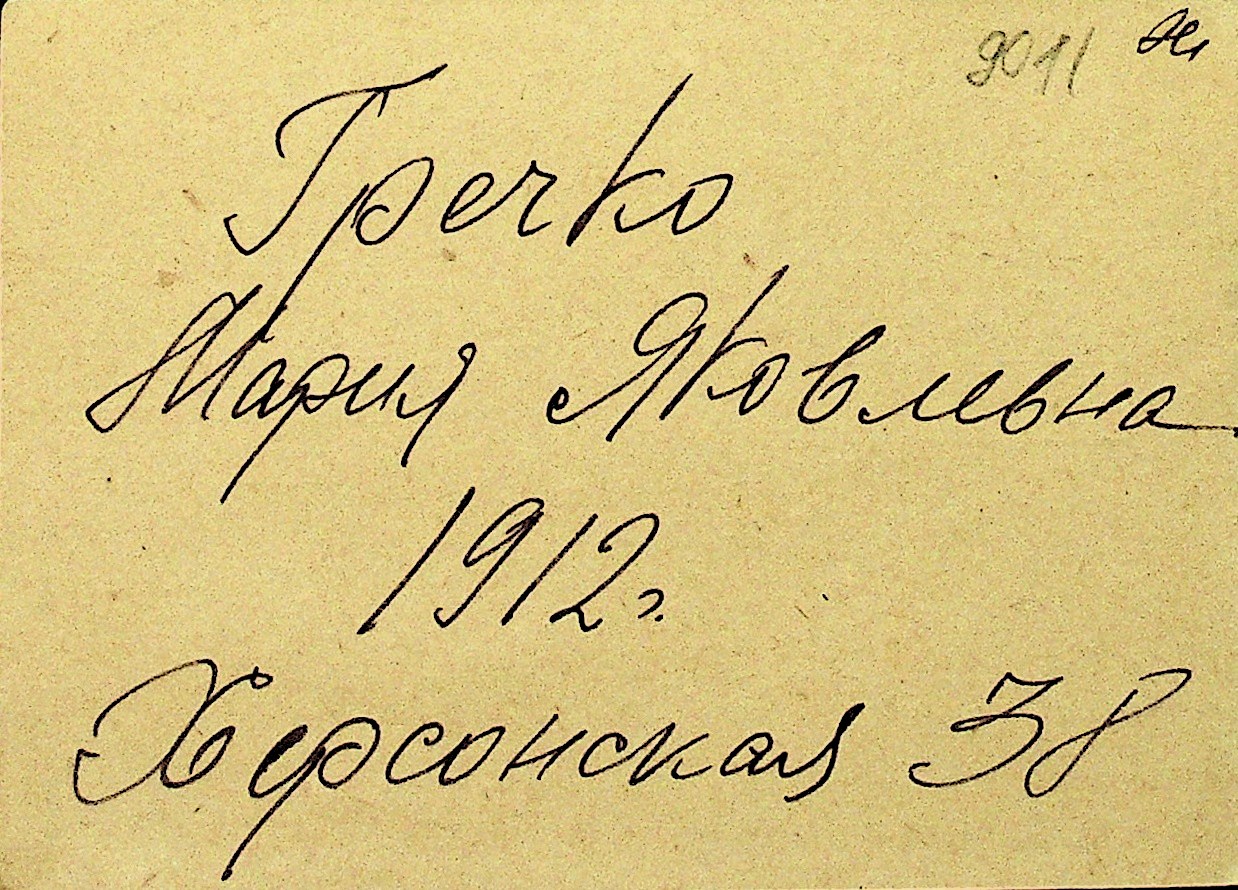 9011
Гречко
Мария Яковлевна
1912г.
Херсонская 38